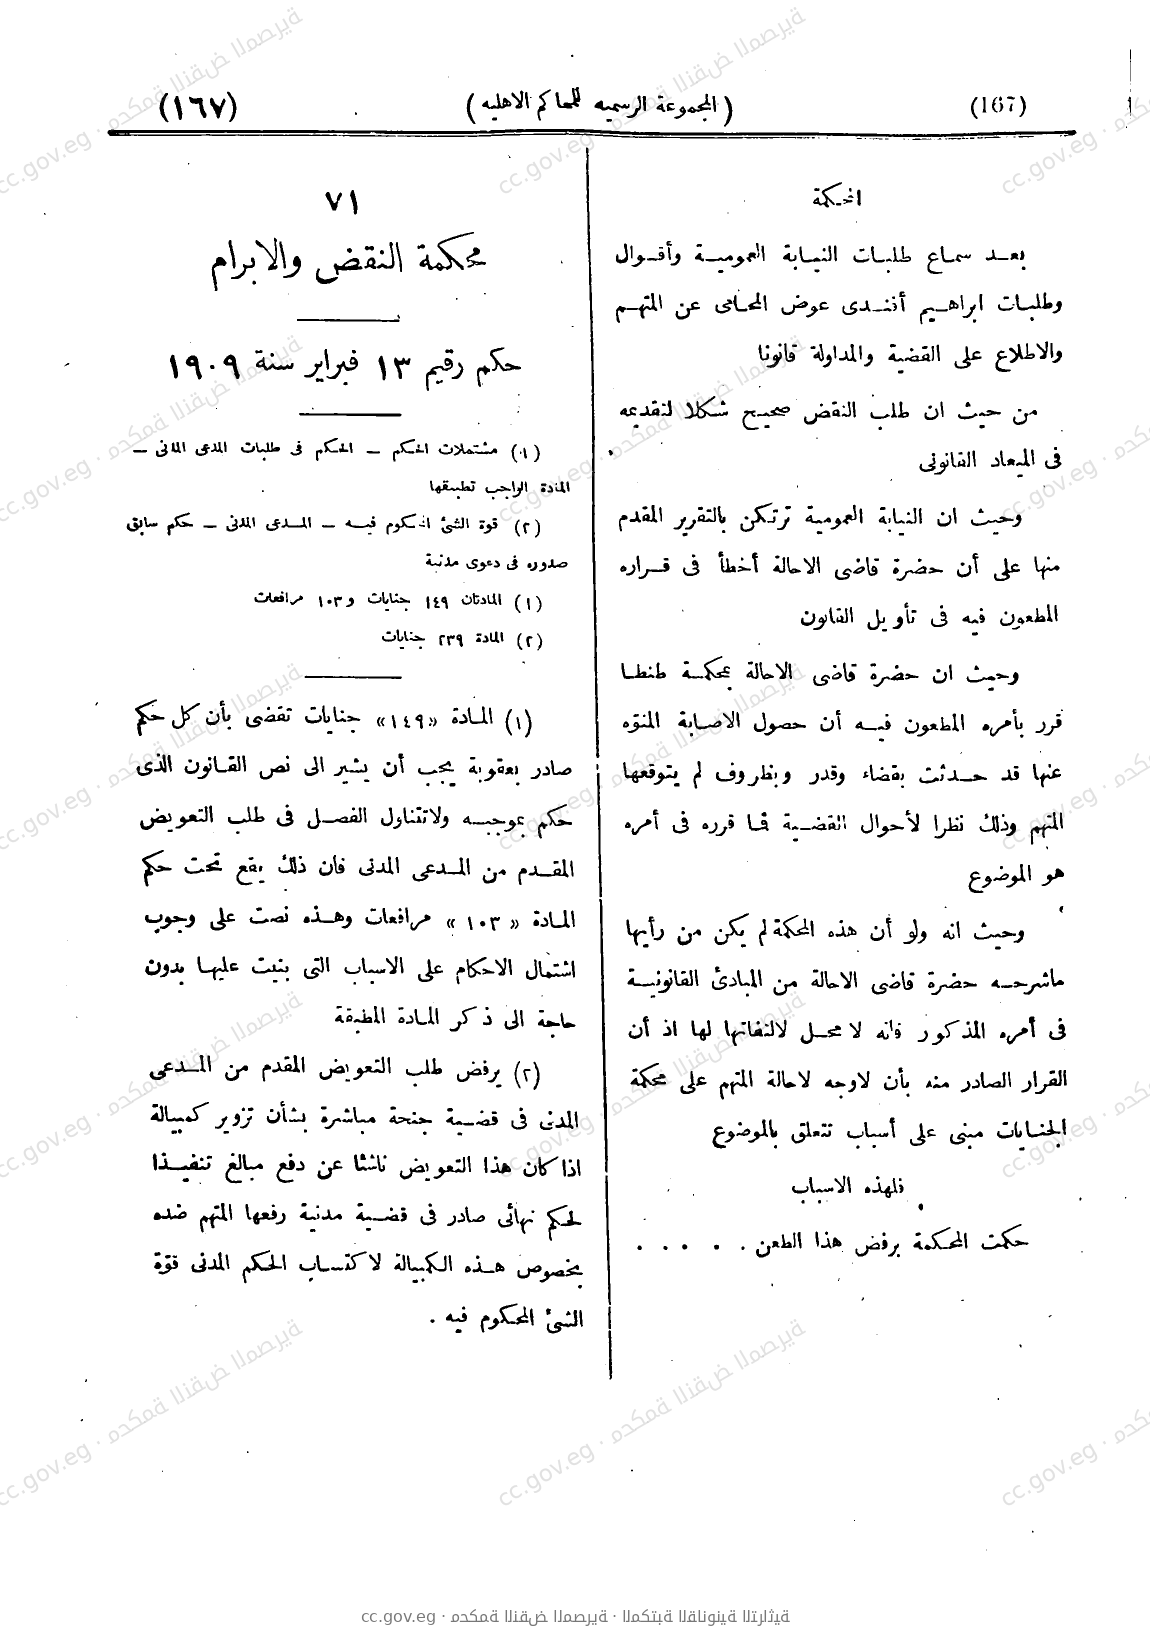 (167) (المجموعة الرسميه للمحاكم الاهليه) (١٦٧)
المحكمة
بعد سماع طلبات النيابة العمومية وأقوال
وطلبات ابراهيم أفندى عوض المحامى عن المتهم
والاطلاع على القضية والمداولة قانونا
من حيث ان طلب النقض صحيح شكلا لتقديمه
فى الميعاد القانونى
وحيث ان النيابة العمومية ترتكن بالتقرير المقدم
منها على أن حضرة قاضى الاحالة أخطأ فى قراره
المطعون فيه فى تأويل القانون
وحيث ان حضرة قاضى الاحالة بمحكمة طنطا
قرر بأمره المطعون فيه أن حصول الاصابة المنوّه
عنها قد حدثت بقضاء وقدر وبظروف لم يتوقعها
المتهم وذلك نظرا لأحوال القضية فما قرره فى أمره
هو الموضوع
وحيث انه ولو أن هذه المحكمة لم يكن من رأيها
ماشرحه حضرة قاضى الاحالة من المبادئ القانونية
فى أمره المذكور فانه لا محل لالتفاتها لها اذ أن
القرار الصادر منه بأن لاوجه لاحالة المتهم على محكمة
الجنايات مبنى على أسباب تتعلق بالموضوع
فلهذه الاسباب
حكمت المحكمة برفض هذا الطعن . . . . .
٧١
محكمة النقض والابرام
حكم رقيم ١٣ فبراير سنة ١٩٠٩
(١) مشتملات الحكم – الحكم فى طلبات المدعى المدنى –
المادة الواجب تطبيقها
(٢) قوة الشئ المحكوم فيه – المدعى المدنى – حكم سابق
صدوره فى دعوى مدنية
(١) المادتان ١٤٩ جنايات و١٠٣ مرافعات
(٢) المادة ٢٣٩ جنايات
(١) المادة «١٤٩» جنايات تقضى بأن كل حكم
صادر بعقوبة يجب أن يشير الى نص القانون الذى
حكم بموجبه ولاتتناول الفصل فى طلب التعويض
المقدم من المدعى المدنى فان ذلك يقع تحت حكم
المادة «١٠٣» مرافعات وهذه نصت على وجوب
اشتمال الاحكام على الاسباب التى بنيت عليها بدون
حاجة الى ذكر المادة المطبقة
(٢) يرفض طلب التعويض المقدم من المدعى
المدنى فى قضية جنحة مباشرة بشأن تزوير كمبيالة
اذا كان هذا التعويض ناشئا عن دفع مبالغ تنفيذا
لحكم نهائى صادر فى قضية مدنية رفعها المتهم ضده
بخصوص هذه الكمبيالة لاكتساب الحكم المدنى قوّة
الشئ المحكوم فيه .
cc.gov.eg · محكمة النقض المصرية · المكتبة القانونية التراثية